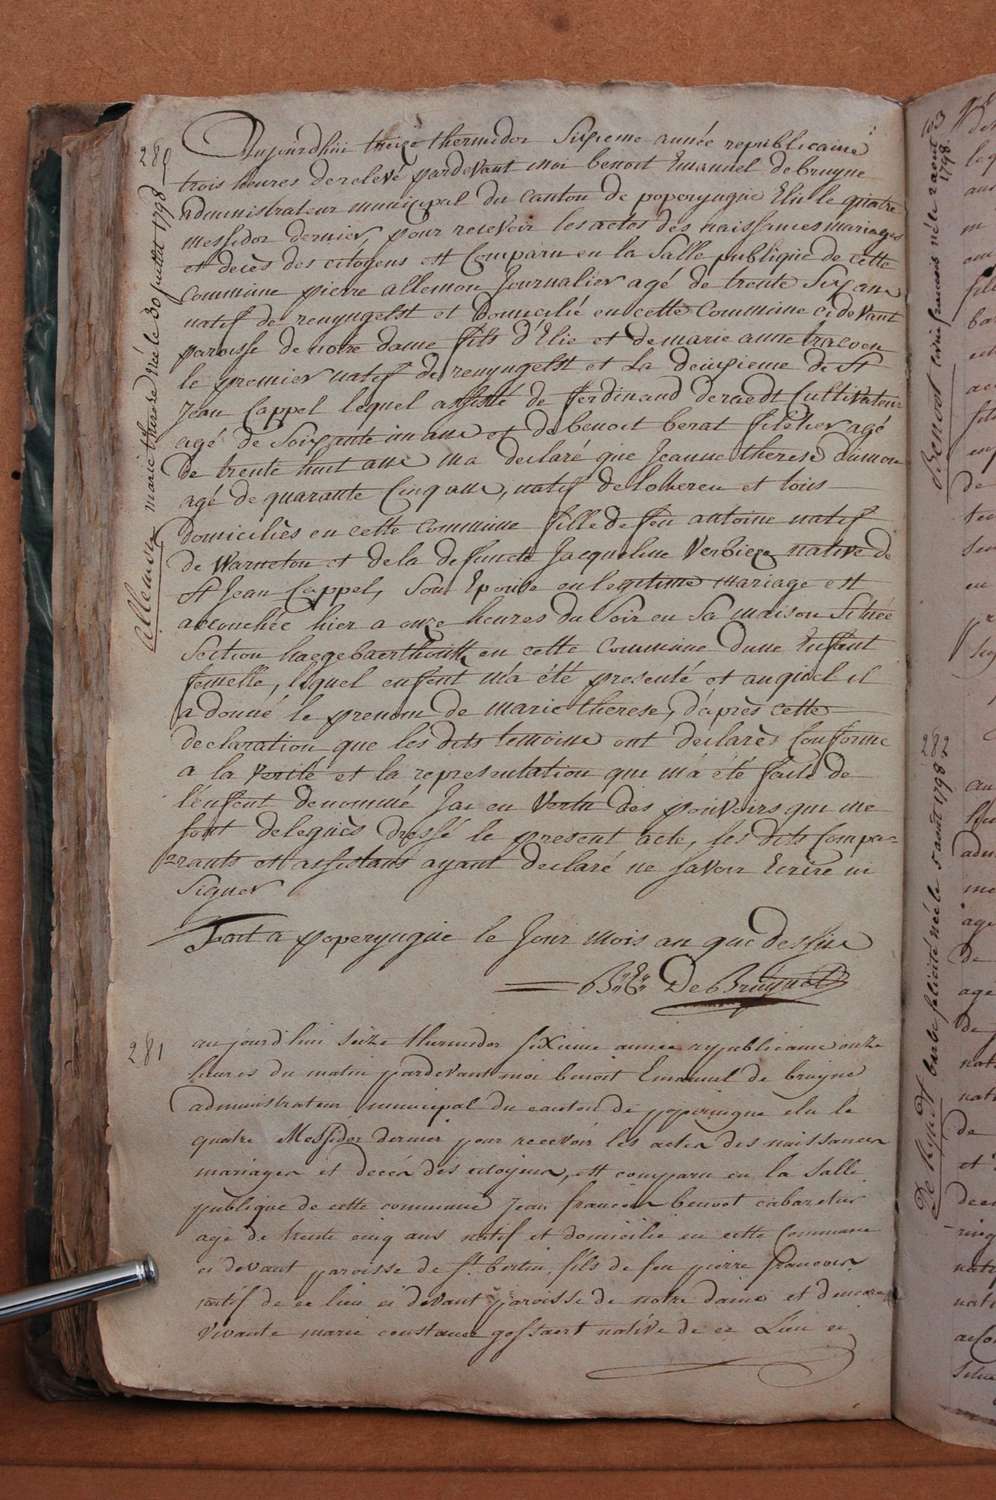 280
allemon marie therese née le 30 juillet 1798
Aujourdhui treize thermidor Sixieme année republicaine
trois heures de relevé pardevant moi benoit Emanuel de bruyne
administrateur municipal du canton de poperyngue Elu le quatre
messidor dernier, pour recevoir les actes des naissances mariages
et decès des citoyens est Comparu en la Salle publique de cette
Commune pierre allemon Journalier agé de trente Six ans
natif de renyngelst et domicilié en cette Commune ci devant
paroisse de notre dame fils d'Elie et de marie anne
le premier natif de renyngelst et La deuxieme de St
Jean Cappel lequel assisté de ferdinand deraedt Cultivateur
agé de Soixante un ans et de benoit berat agé
de trente huit ans ma declaré que Jeanne therese dumon
agé de quarante Cinq ans, natif de et tous
domiciliès en cette commune fille de feu antoine natif
de Warneton et de la defuncte Jacqueline Verbieze native de
St Jean Cappel, Son Epouse en legitime mariage est
accouchée hier a onze heures du Soir en Sa maison Située
Section haegebaerthouck en cette Commune dune Enfant
femelle, lequel enfent m'a été presenté et auquel il
a donné le prenom de marie therese, d'après cette
declaration que les dits temoins ont declarès Conforme
a la verité et la representation qui m'a été faite de
l'enfent denommé Jai en Vertu des pouvoirs qui me
sont deleguès dressé le present acte, les dits Compa=
=rants et assistans ayant declaré ne savoir Ecrire ni
Signer
Fait a poperyngue le Jour mois an que dessus
De Bruyne
281
aujourd'hui seize thermidor sixieme année republicaine onze
heures du matin pardevant moi benoit Emanuel de bruyne
administrateur municipal du canton de poperingue elu le
quatre Messidor dernier pour recevoir les actes des naissances
mariages et decés des citoyens, est comparu en la salle
publique de cette commune jean francois benoot cabaretier
agé de trente cinq ans natif et domicilié en cette Commune
ci devant paroisse de St bertin, fils de feu pierre francois
natif de ce lieu ci devant paroisse de notre dame et
vivante marie constance gossaert native de ce Lieu ci
benoot née le 2 aout
1798
282
De Rijdt barbe felicité née le 5 aout 1798